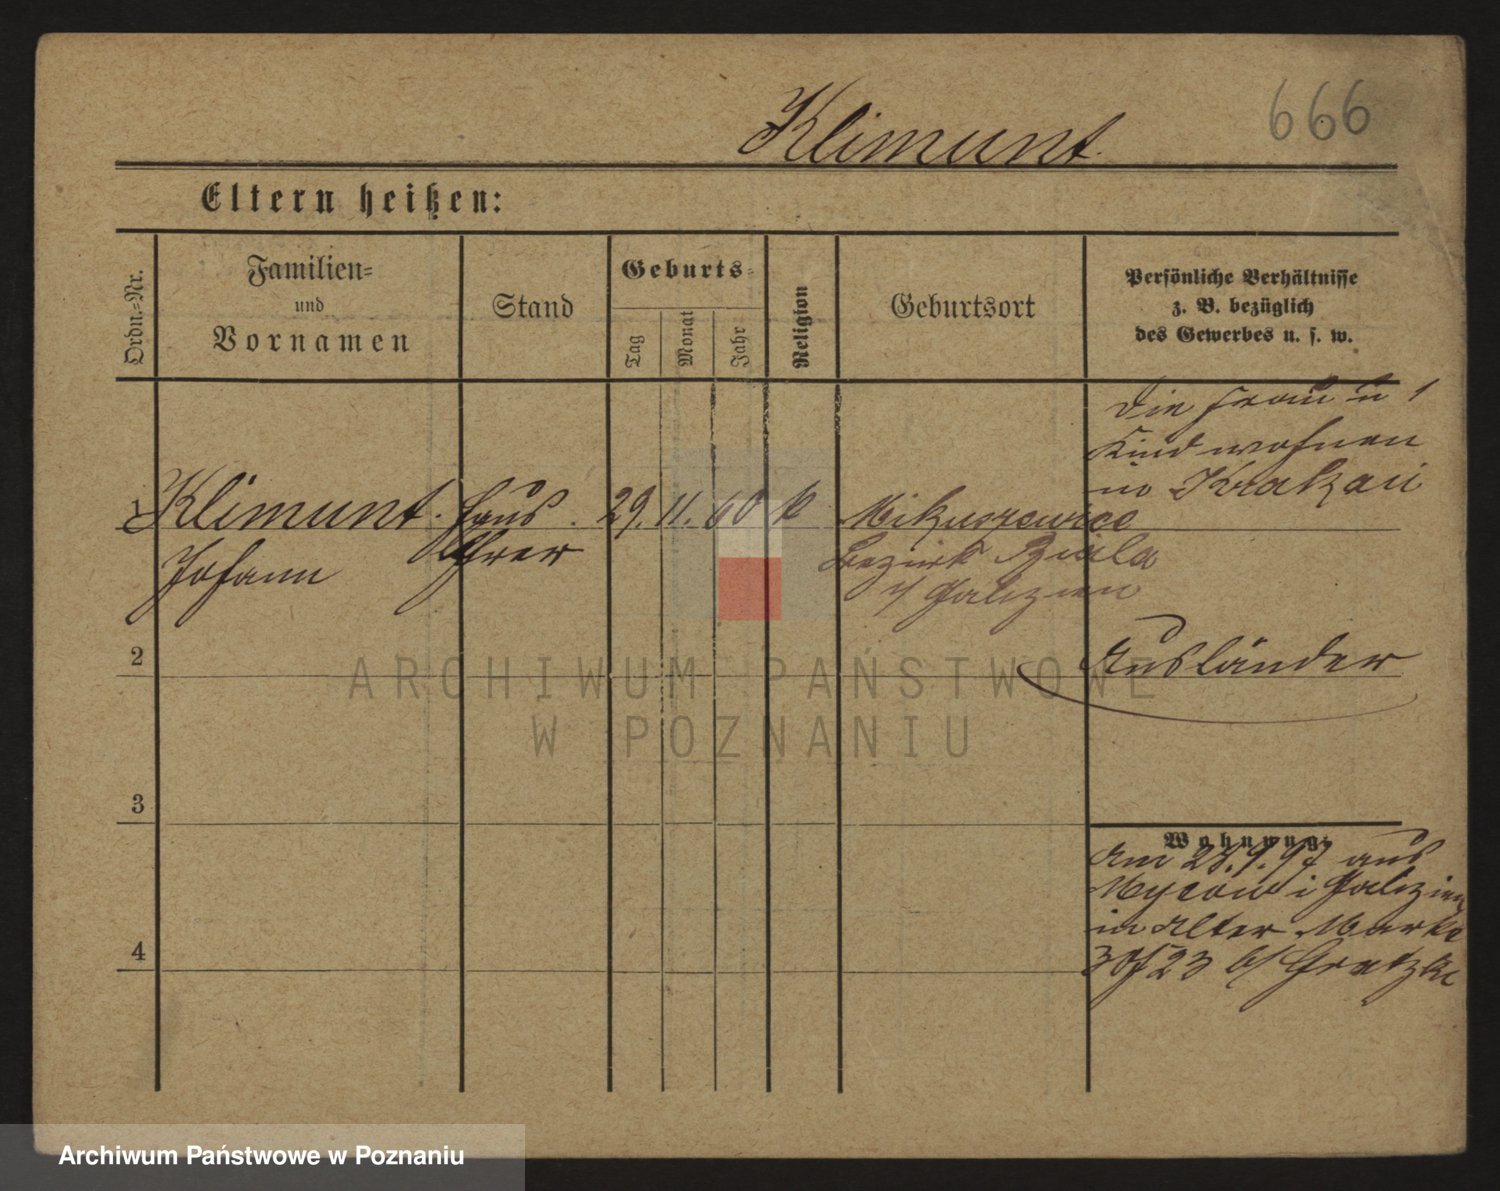 Klimunt.
666
Eltern heißen:
Ordn.-Nr.
Familien-
und
Vornamen
Stand
Geburts-
Tag
Monat
Jahr
Religion
Geburtsort
Persönliche Verhältnisse
z. B. bezüglich
des Gewerbes u. s. w.
die Frau u 1
Kind wohnen
in Krakau
1
Klimunt.
Johann
Haus
29. 11. 60
k
Mikuszowice
Bezirk Biala
i/ Galizien
2
Ausländer
ARCHIWUM PAŃSTWOWE
W POZNANIU
3
Wohnung:
Am 28.9.97 aus
i Galizien
in Alter Markt
4
Archiwum Państwowe w Poznaniu